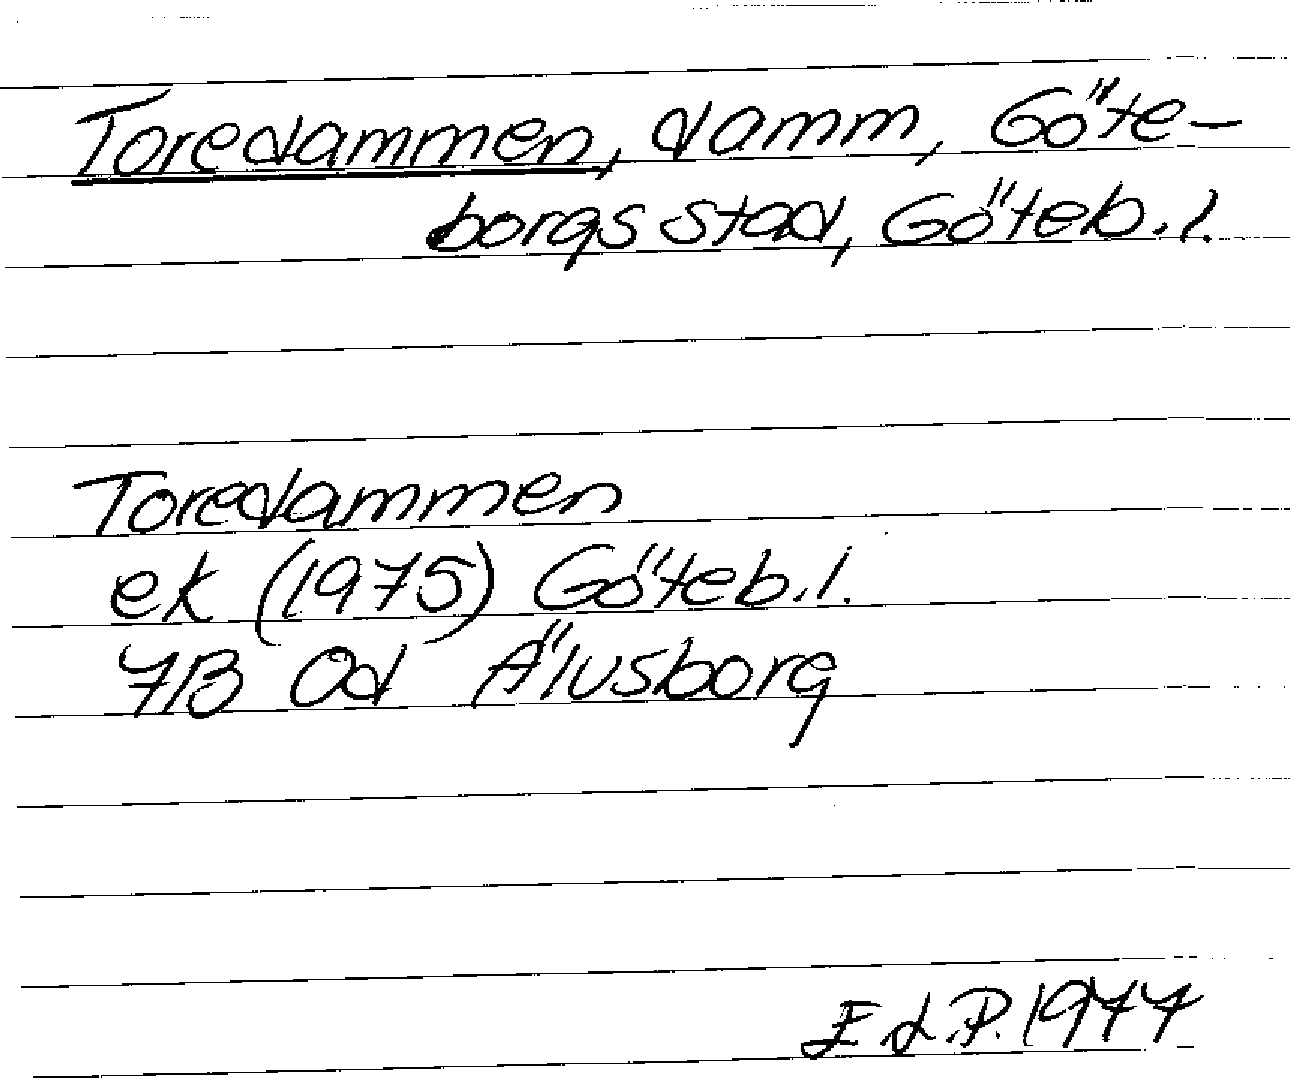 Toredammen, damm, Göte-
borgs stad, Göteb.l.
Toredammen
ek (1975) Göteb.l.
7B 0d Älvsborg
E.L.P. 1977